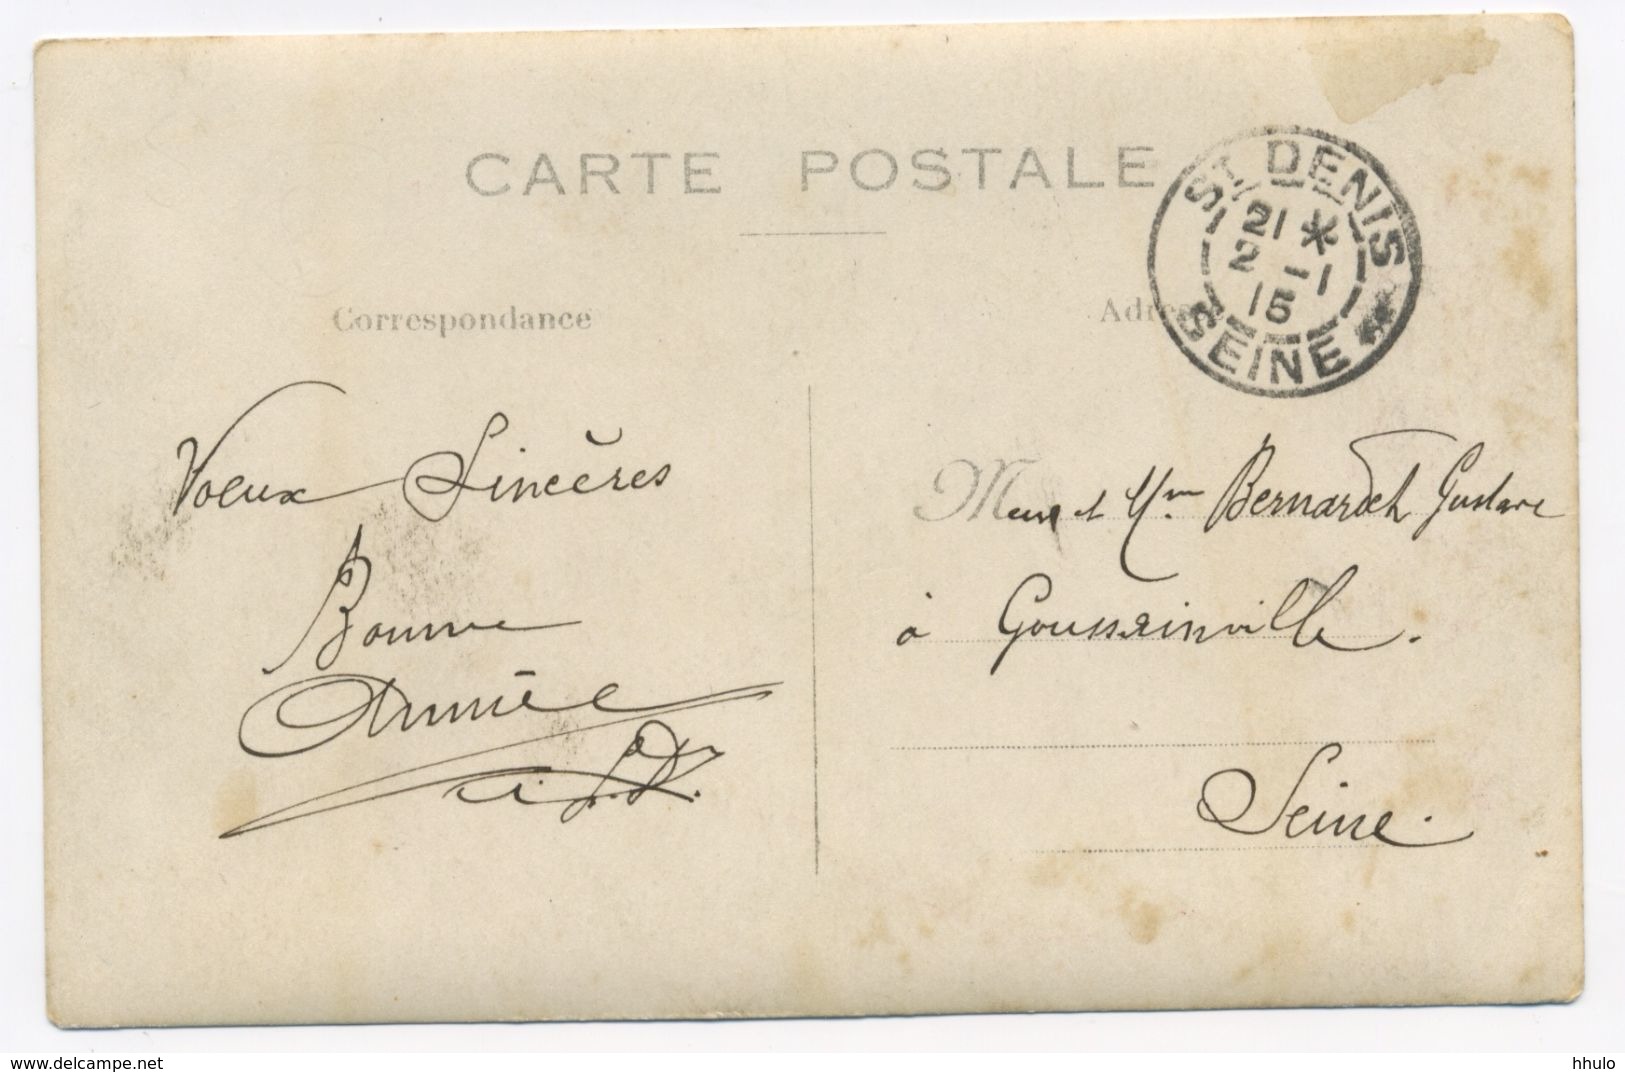 CARTE POSTALE
ST DENIS
21 *
2 - 1
15
SEINE
Correspondance
Voeux Sincères
Bonne
Année
Meur et Mme Bernardet Gustave
à Goussainville.
Seine.
delcampe.net
hhulo